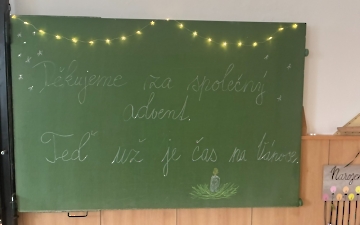 Děkujeme za společný
advent.
Teď už je čas na Vánoce.
Narozen